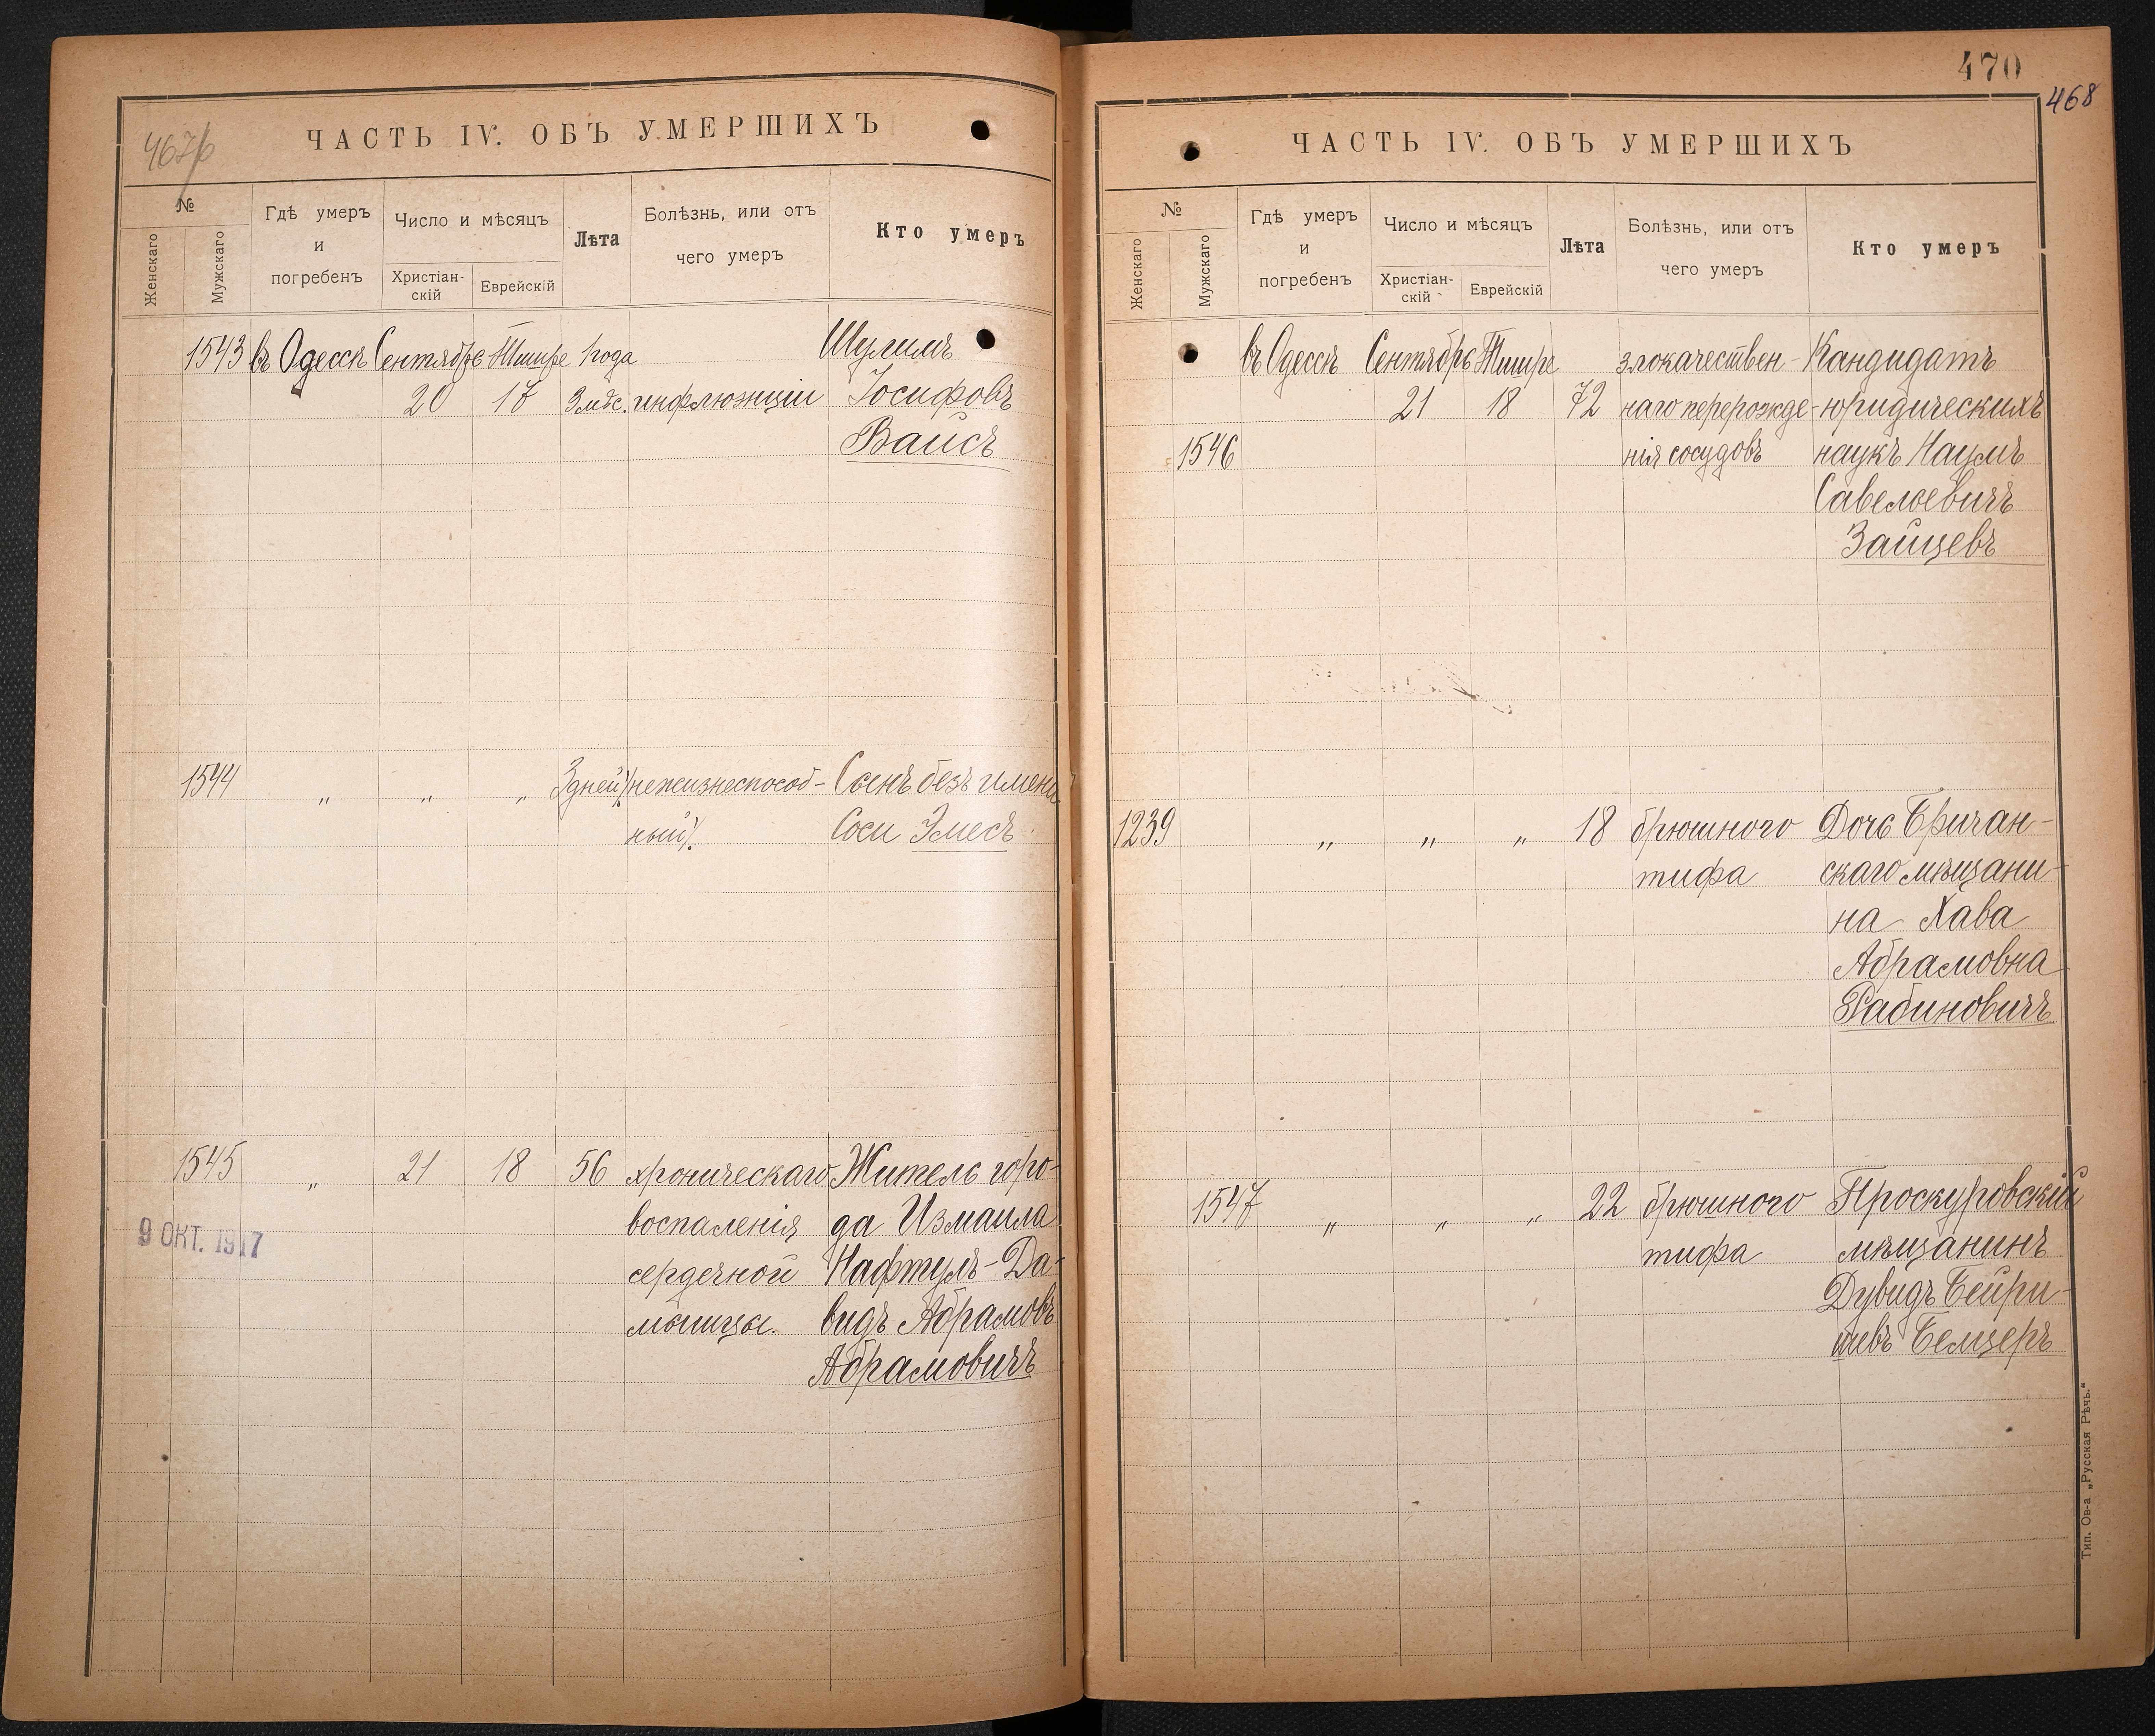 467/б
ЧАСТЬ IV. ОБЪ УМЕРШИХЪ
№
Женскаго
Мужскаго
Гдѣ умеръ
и
погребенъ
Число и мѣсяцъ
Христіан-
скій
Еврейскій
Лѣта
Болѣзнь, или отъ
чего умеръ
Кто умеръ
1543 въ Одессѣ Сентябрь Тишре 1 года Шулимъ
20 17 3 мѣс. инфлюэнціи Іосифовъ
Вайсъ
1544 „ „ „ 3 дней (нежизнеспособ- Сынъ безъ имени
ный). Соси Эмесъ
1545 „ 21 18 56 хроническаго Житель горо-
воспаленія да Измаила
9 ОКТ. 1917
сердечной Нафтулъ-Да-
мышцы. видъ Абрамовъ
Абрамовичъ
470
468
ЧАСТЬ IV. ОБЪ УМЕРШИХЪ
№
Женскаго
Мужскаго
Гдѣ умеръ
и
погребенъ
Число и мѣсяцъ
Христіан-
скій
Еврейскій
Лѣта
Болѣзнь, или отъ
чего умеръ
Кто умеръ
въ Одессѣ Сентябрь Тишре злокачествен- Кандидатъ
21 18 72 наго перерожде- юридическихъ
1546 нія сосудовъ наукъ Наумъ
Савельевичъ
Зайцевъ
1239 „ „ „ 18 брюшного Дочь Бричан-
тифа скаго мѣщани-
на Хава
Абрамовна
Рабиновичъ
1547 „ „ „ 22 брюшного Проскуровскій
тифа мѣщанинъ
Дувидъ Бейри-
шевъ Белцеръ
Тип. Ов-а „Русская Рѣчь.“